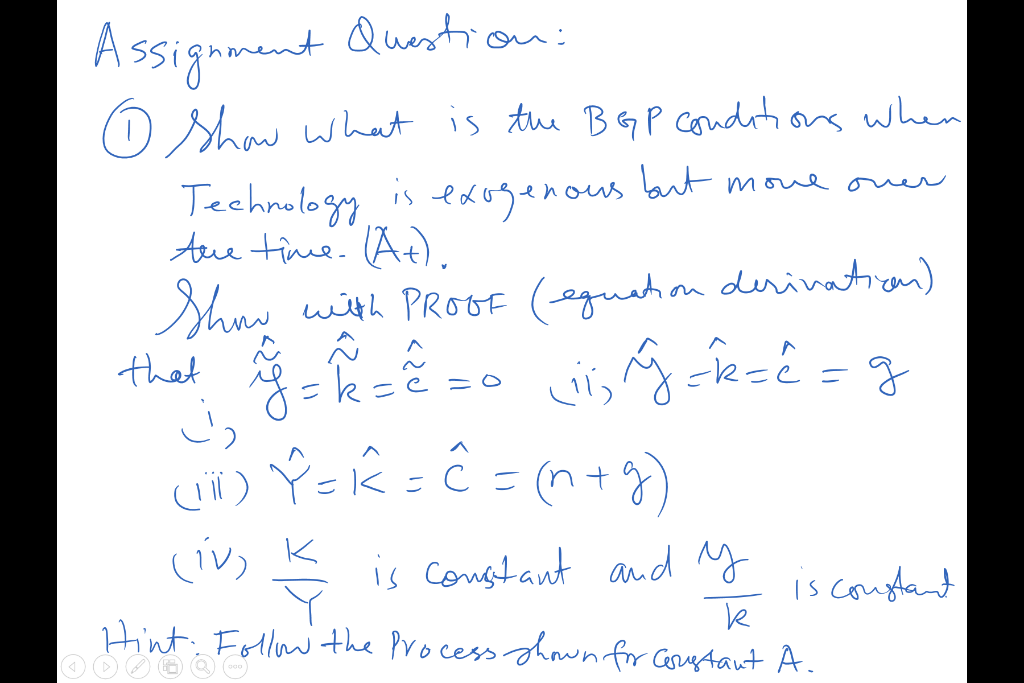 Assignment Question:
① Show what is the BGP conditions when
Technology is exogenous but move over
the time. (At).
Show with PROOF (equation derivation)
that (i) ŷ̃ = k̃̂ = c̃̂ = 0 (ii) ŷ = k̂ = ĉ = g
(iii) Ŷ = K̂ = Ĉ = (n+g)
(iv) K/Y is constant and y/k is constant
Hint: Follow the Process shown for constant A.